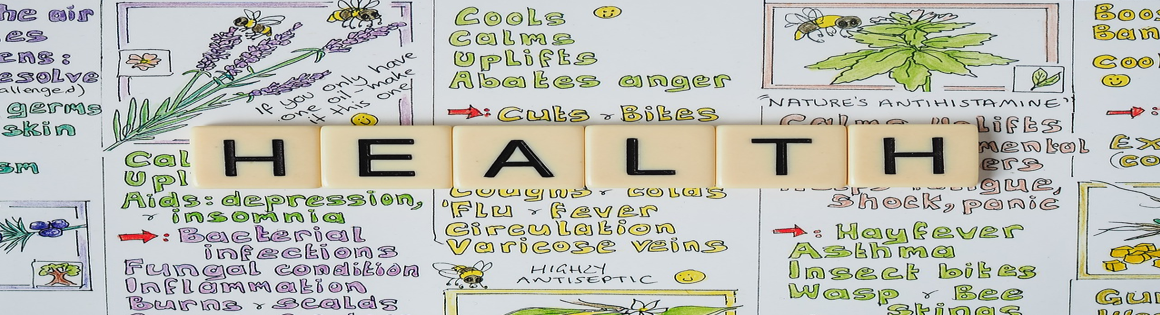 he air
es
ens:
esolve
allenged)
germs
skin
sm
If you only have
one oil-make
it this one!
Cal
Upl
Aids: depression,
& insomnia
: Bacterial
infections
Fungal condition
Inflammation
Burns & scalds
Cools
Calms
Uplifts
Abates anger
: Cuts & Bites
HEALTH
Coughs & colds
'Flu & fever
Circulation
Varicose veins
HIGHLY
ANTISEPTIC
"NATURE'S ANTIHISTAMINE"
Calms, Uplifts
mental
ers
Helps fatigue,
shock, panic
: Hayfever
Asthma
Insect bites
Wasp & Bee
stings
Boos
Ban
Cool
:
Ex
(co
Gu